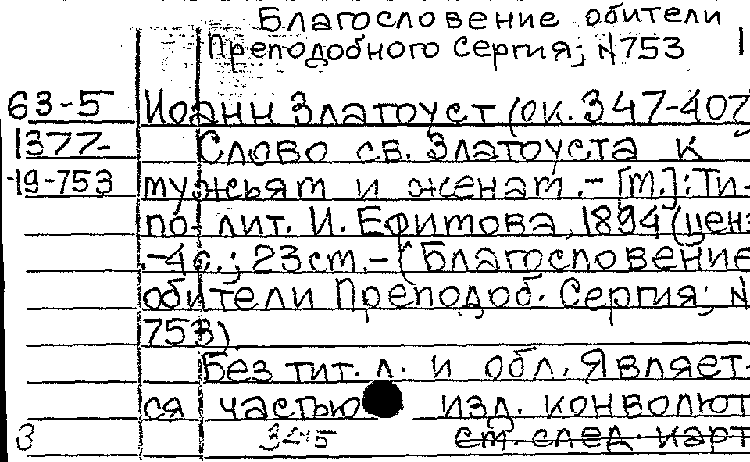 Благословение обители
Преподобного Сергия; N753
63-5 Иоанн Златоуст (ок. 347-407
1377- Слово св. Златоуста к
19-753 мужьям и женам. - [М.]: Ти-
по-лит. И. Ефимова, 1894 (ценз
.-4с.; 23см. - (Благословение
обители Преподоб. Сергия; N
753)
Без тит. л. и обл. Являет-
ся частью изд. конволют
3 345 см. след. карт